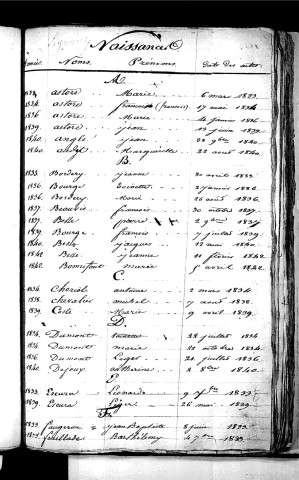 Naissances
Années. Noms. Prénoms. Date des actes
A.
1833. astore Marie 6 mars 1833.
1834. astore francois (francois) 17 mai 1834
1836 astore Marie 4 février 1836
1839. astore jean 13 juin 1839.
1840. anglé jean 22 9bre 1840.
1840. Marguerite 22 aout 1840
B.
1833. Bordery jeanne 20 avril 1833
1836. Bourge 2 janvier 1836.
1836. Bordery Marie 26 août 1836
1837. francois 30 octobre 1837.
1837. Belle pierre 2 9bre 1837
1839. Bourge francois 7 juillet 1839.
1840. Belle jacques 13 mai 1840.
1842 Belle jeanne 11 février 1842
1842. Bonnefont marie 5 avril 1842.
C.
1834. Cheriol antoine 2 mars 1834
1838. Chevalier michel 7 aout 1838.
1839. Coste Marie 9 avril 1839.
D.
1834. Dumont 28 juillet 1834
1834. Dumont marie 20 octobre 1834.
1836 Dumont Leger 21 juillet 1836
1840. Dejoux catherine 2 8bre 1840.
E.
1833. Escura Léonarde 9 7bre 1833
1839. Escura Léger 26 mai 1839.
F.
1833. faugeron jean Baptiste 8 juin 1833.
feuillade Barthélemy 4 7bre 1833.